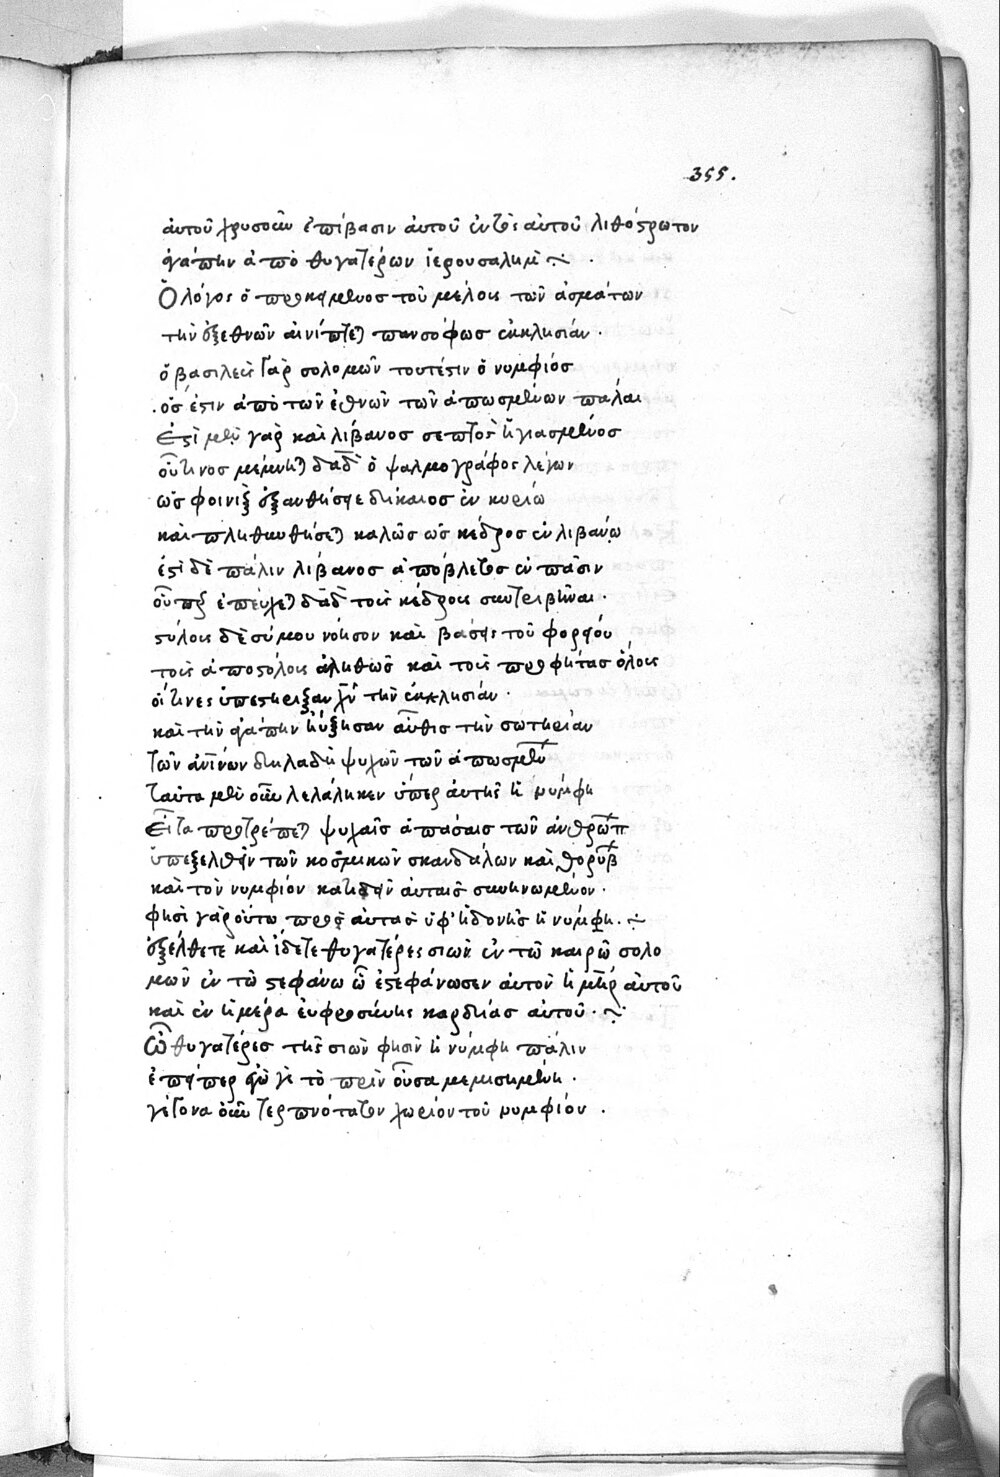 355.
αὐτοῦ χρυσοῦν ἐπίβασιν αὐτοῦ ἐντὸς αὐτοῦ λιθόστρωτον
ἀγάπην ἀπὸ θυγατέρων ἱερουσαλήμ :~
Ὁ λόγος ὁ προκείμενος τοῦ μέλους τῶν ἀσμάτων
τὴν ἐξ ἐθνῶν αἰνίττεται πανσόφως ἐκκλησίαν·
ὁ βασιλεὺς γὰρ σολομῶν τουτέστιν ὁ νυμφίος
ὅς ἐστιν ἀπὸ τῶν ἐθνῶν τῶν ἀπωσμένων πάλαι
ἐστὶ μὲν γὰρ καὶ λίβανος σεπτὸς ἡγιασμένος
οὗτινος μέμνηται δαδ ὁ ψαλμογράφος λέγων
ὡς φοίνιξ ἐξανθήσειε δίκαιος ἐν κυρίω
καὶ πληθυνθήσεται καλῶς ὡς κέδρος ἐν λιβάνω
ἐστὶ δὲ πάλιν λίβανος ἀπόβλητος ἐν πᾶσιν
οὗπερ ἐπεύχεται δαδ τοὺς κέδρους συντριβῆναι·
στύλους δὲ σύ μου νόησον καὶ βάσεις τοῦ φορείου
τοὺς ἀποστόλους ἀληθῶς καὶ τοὺς προφήτας ὅλους
οἵτινες ὑπεστήριξαν χν τὴν ἐκκλησίαν·
καὶ τὴν ἀγάπην ηὔξησαν αὖθις τὴν σωτηρίαν
τῶν ἀνίνων δηλαδὴ ψυχῶν τῶν ἀπωσμένων
ταῦτα μὲν οὖν λελάληκεν ὑπὲρ αὐτῆς ἡ νύμφη
εἶτα προτρέπεται ψυχαῖς ἁπάσαις τῶν ἀνθρώπ
ὑπεξελθεῖν τῶν κοσμικῶν σκανδάλων καὶ θορύβ
καὶ τὸν νυμφίον κατιδεῖν αὐταῖς συνηνωμένον·
φησὶ γὰρ οὕτω πρὸς αὐτὰς ὑφ' ἡδονῆς ἡ νύμφη· :~
ἐξέλθετε καὶ ἴδετε θυγατέρες σιὼν ἐν τῶ καιρῶ σολο
μῶν ἐν τῶ στεφάνω ᾧ ἐστεφάνωσεν αὐτὸν ἡ μηρ αὐτοῦ
καὶ ἐν ἡμέρα εὐφροσύνης καρδίας αὐτοῦ· :~
Ὦ θυγατέρες τῆς σιὼν φησὶν ἡ νύμφη πάλιν
ἐπείπερ ἐγώ γε τὸ πρὶν οὖσα μεμισημένη·
γέγονα οὖν τερπνότατον χωρίον τοῦ νυμφίου·